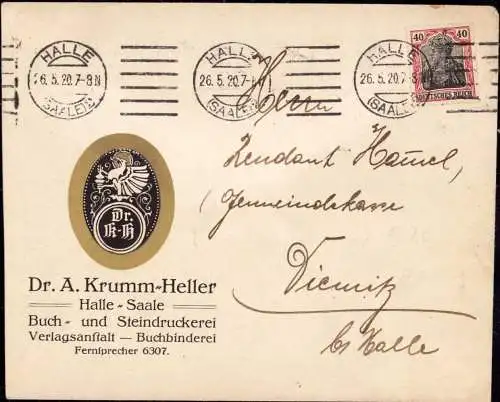 HALLE
26.5.20.7-8N
(SAALE)2
HALLE
26.5.20.7-8N
(SAALE)2
HALLE
26.5.20.7-8N
(SAALE)2
40 40
DEUTSCHES REICH
Herrn
Rendant Hamel,
Gemeindekasse
Diemitz
b/ Halle
Dr.
K-H
Dr. A. Krumm-Heller
Halle - Saale
Buch- und Steindruckerei
Verlagsanstalt — Buchbinderei
Fernsprecher 6307.